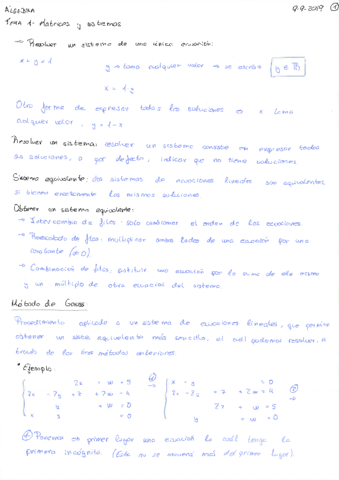 ÁLGEBRA 9-9-2019 1
TEMA 1- Matrices y sistemas
→ Resolver un sistema de una única ecuación:
x + y = 1 y → toma cualquier valor → se escribe y ∈ ℝ
x = 1 - y
Otra forma de expresar todas las soluciones es x toma
cualquier valor, y = 1 - x
Resolver un sistema: resolver un sistema consiste en expresar todas
las soluciones, o por defecto, indicar que no tiene soluciones.
Sistema equivalente: dos sistemas de ecuaciones lineales son equivalentes
si tienen exactamente las mismas soluciones.
Obtener un sistema equivalente:
→ Intercambio de filas: solo cambiamos el orden de las ecuaciones.
→ Reescalado de filas: multiplicar ambos lados de una ecuación por una
constante (≠ 0)
→ Combinación de filas, sustituir una ecuación por la suma de ella misma
y un múltiplo de otra ecuación del sistema.
Método de Gauss
Procedimiento aplicado a un sistema de ecuaciones lineales, que permite
obtener un equivalente más sencillo, el cuál podamos resolver, a
través de los tres métodos anteriores.
* Ejemplo
① Ponemos en primer lugar una ecuación la cuál tenga la
primera incógnita. (Esta no se moverá más del primer lugar).